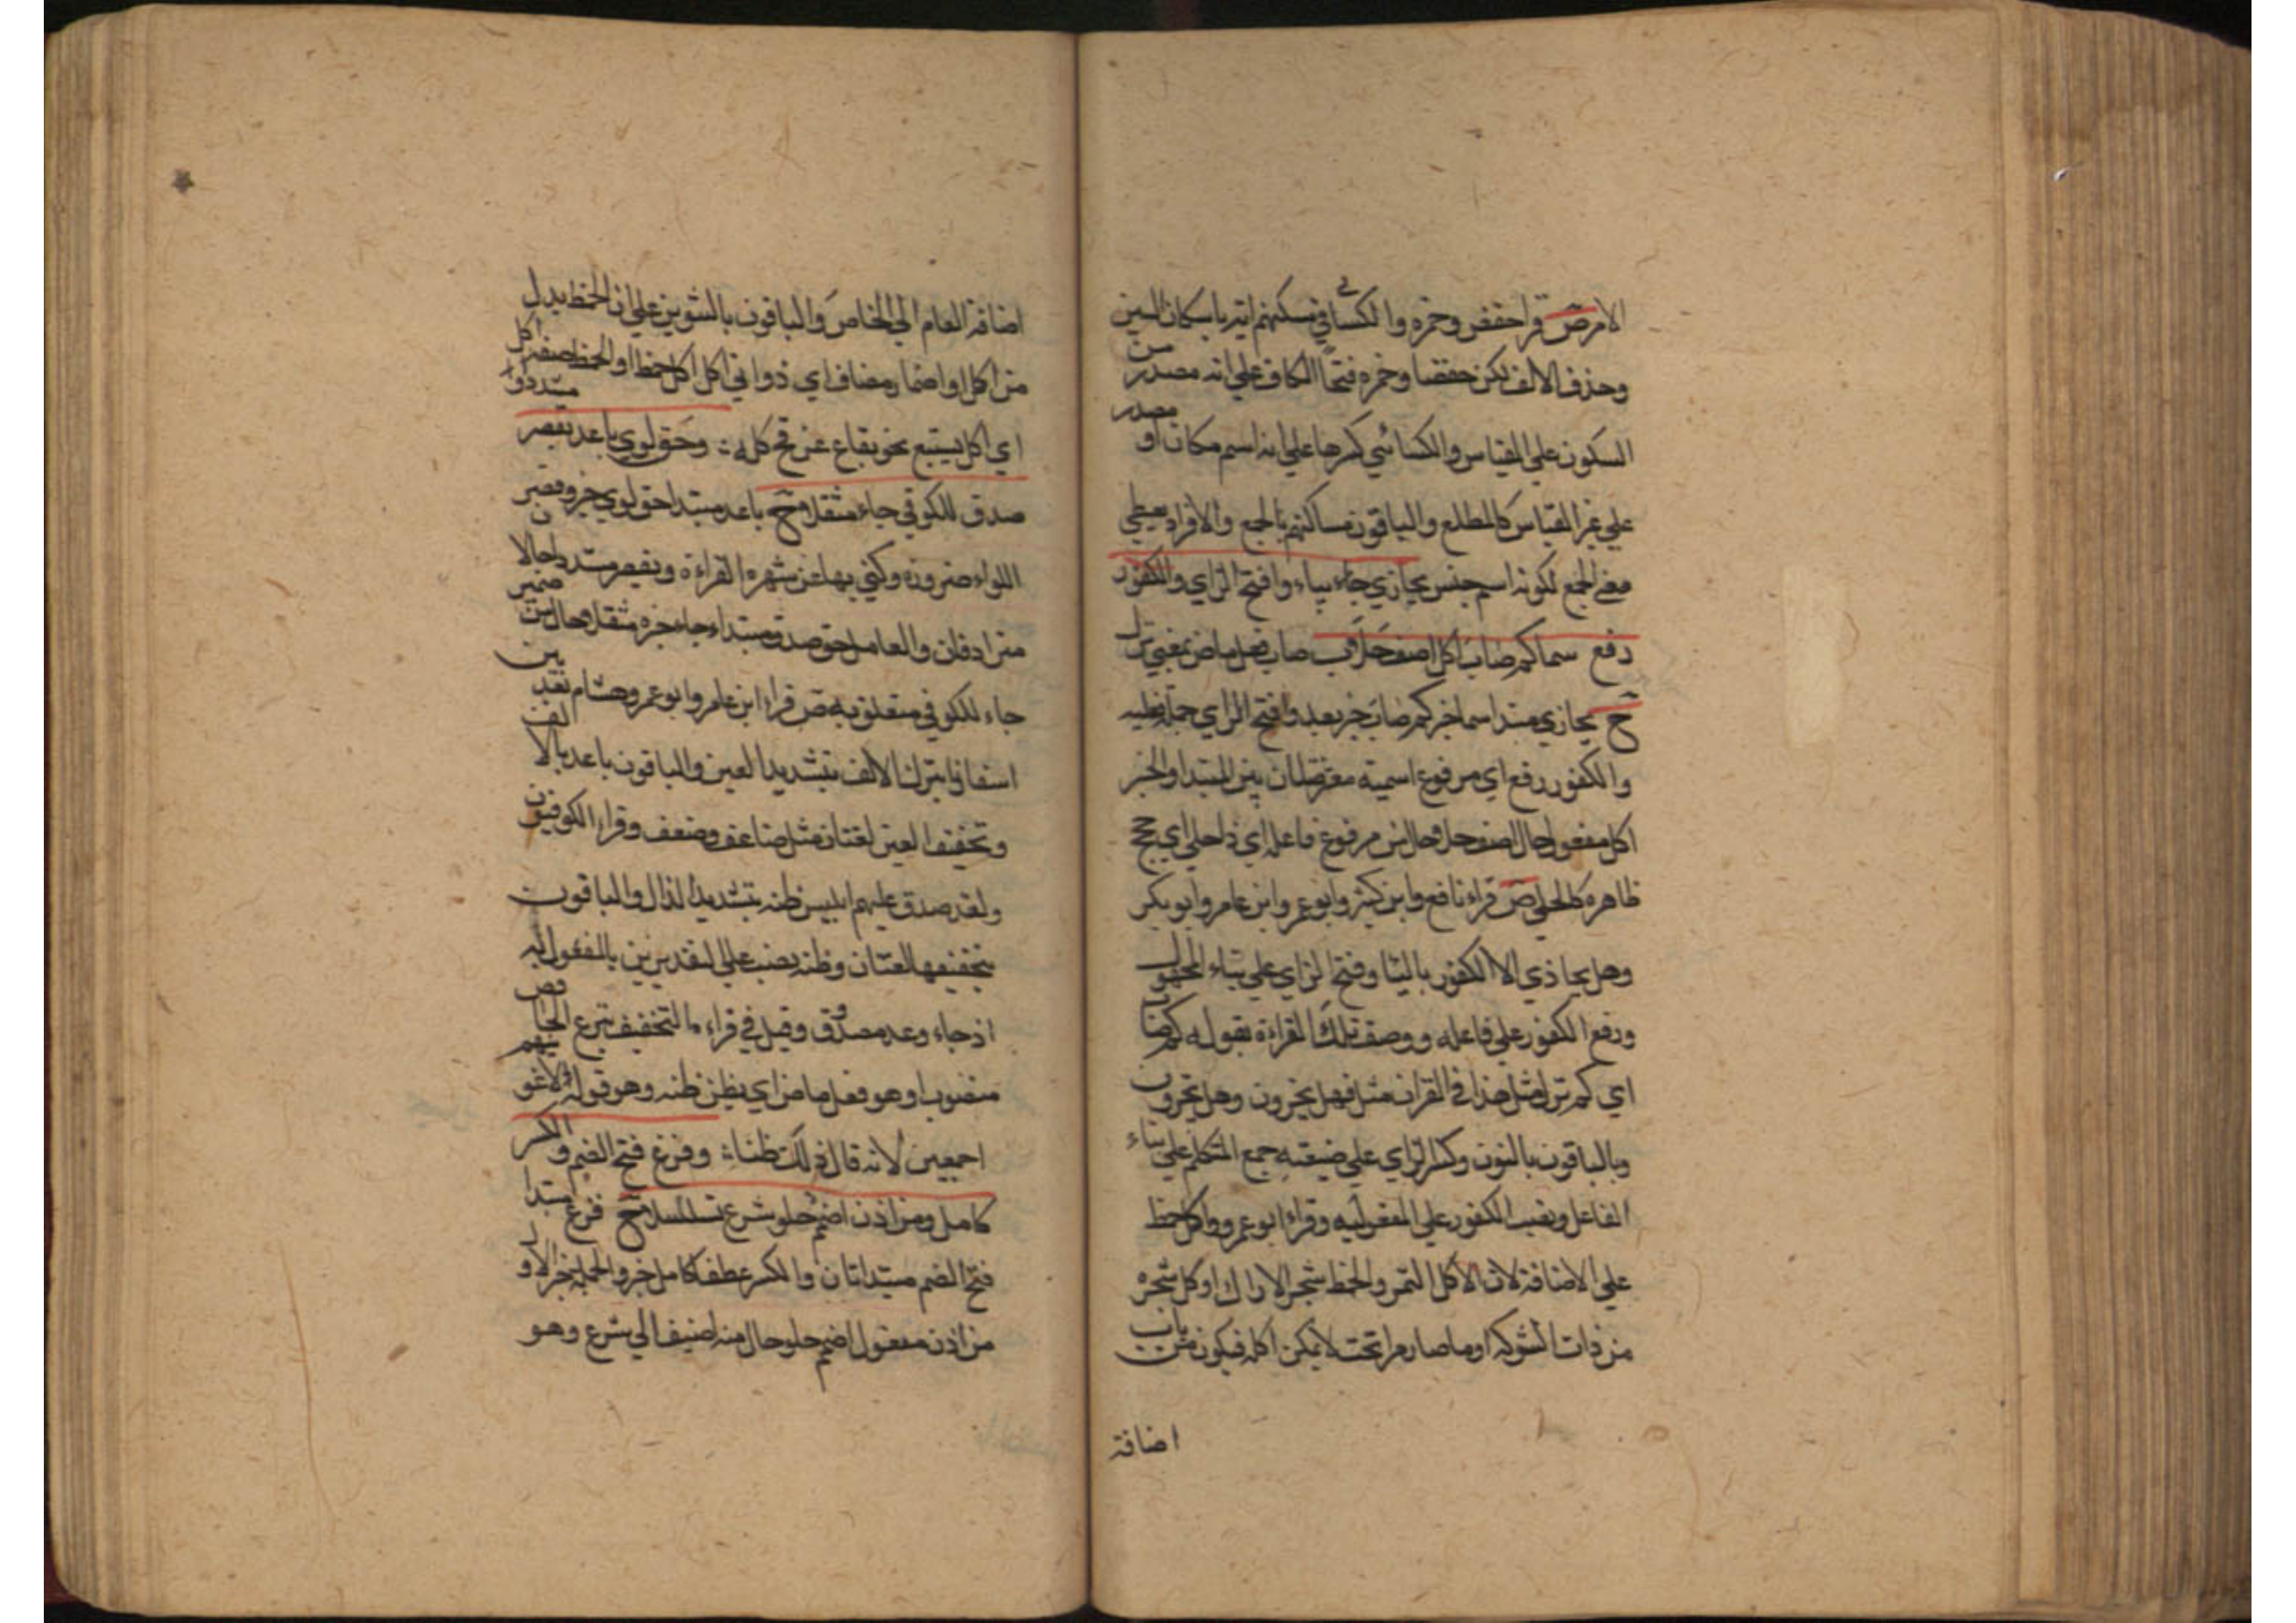 الامر ص قرا حفص وحمزه والكسائي في مسكنهم ايه باسكان السين
وحذف الالف لكن حفصا وحمزه فتحا الكاف علي انه مصدر من
السكون علي القياس والكسائي كسرها علي انه اسم مكان او مصدر
علي غير القياس كالمطلع والباقون مساكنهم بالجمع والافراد يعطي
معني الجمع لكونه اسم جنس يجازي جاء بياء وافتح الزاي والكفور
رفع سما كم صاب اكل اضف حلا ب صاب فعل ماض بمعني نزل
ح يجازي مبتدا سما خبر كم صاب خبر بعد وافتح الزاي جملة فعليه
والكفور رفع اي مرفوع اسمية معترضتان بين المبتدا والخبر
اكل مفعول حال اضف حلا حال من مرفوع فاعله اي ذا حلي اي حجج
ظاهره كالحلي ص قراء نافع وابن كثير وابو عمرو وابن عامر وابو بكر
وهل يجاذي الا الكفور بالياء وفتح الزاي علي بناء المجهول
ورفع الكفور علي فاعله ووصف تلك القراءة بقوله كم صاب
اي كم نزل مثل هذا في القران مثل فهل يجزون وهل تجزون
وبالباقون بالنون وكسر الزاي علي صيغته جمع المتكلم علي بناء
الفاعل ونصب الكفور علي المفعوليه وقراء ابو عمرو واكل خمط
علي الاضافة لان الاكل الثمر والخمط شجر الاراك او كل شجره
من ذات الشوكة او ما صار مرا بحت لا يمكن اكله فيكون من باب
اضافة
اضافة العام الي الخاص والباقون بالتنوين علي ان الخمط بدل
من اكل او اضمار مضاف اي ذواتي اكل اكل خمط او الخمط صفه اكل
اي اكل بستبع نحو بقاع عن قح كله : وحق لوي باعد بقصر مشددا
صدق للكوفي جاء مثقلا ح باعد مبتدا حق لوي خبر وقصر
اللواء ضرورة وكني بها عن شهره القراءة وبقصر مشددا حالان
مترادفان والعامل حق صدق مبتداء جاء خبره مثقلا حال من ضمير
جاء للكوفي متعلق به ص قراء ابن عامر وابو عمرو وهشام بعد بين
اسفارنا بترك الالف بتشديد العين والباقون باعد بالالف
وتخفيف العين لغتان مثل ضاعف وضعف وقراء الكوفيون
ولقد صدق عليهم ابليس ظنه بتشديد الذال والباقون
بتخفيفها لغتان وظنه نصب علي التقديرين بالمفعول به
اذ جاء وعد مصدق وقيل في قراءه التخفيف بنزع الخافض
منصوب او هو فعل ماض اي يظن ظنه وهو قوله لاغوينهم
اجمعين لانه قال ذلك ظناء : وفزع فتح الضم والكسر
كامل ومن اذن اضمم حلو شرع تسلسلا ح فزع مبتدا
فتح الضم مبتدا ثان والكسر عطف كامل خبر والجملة خبر الاول
من اذن مفعول اضمم حلو حال منه اضيف الي شرع وهو